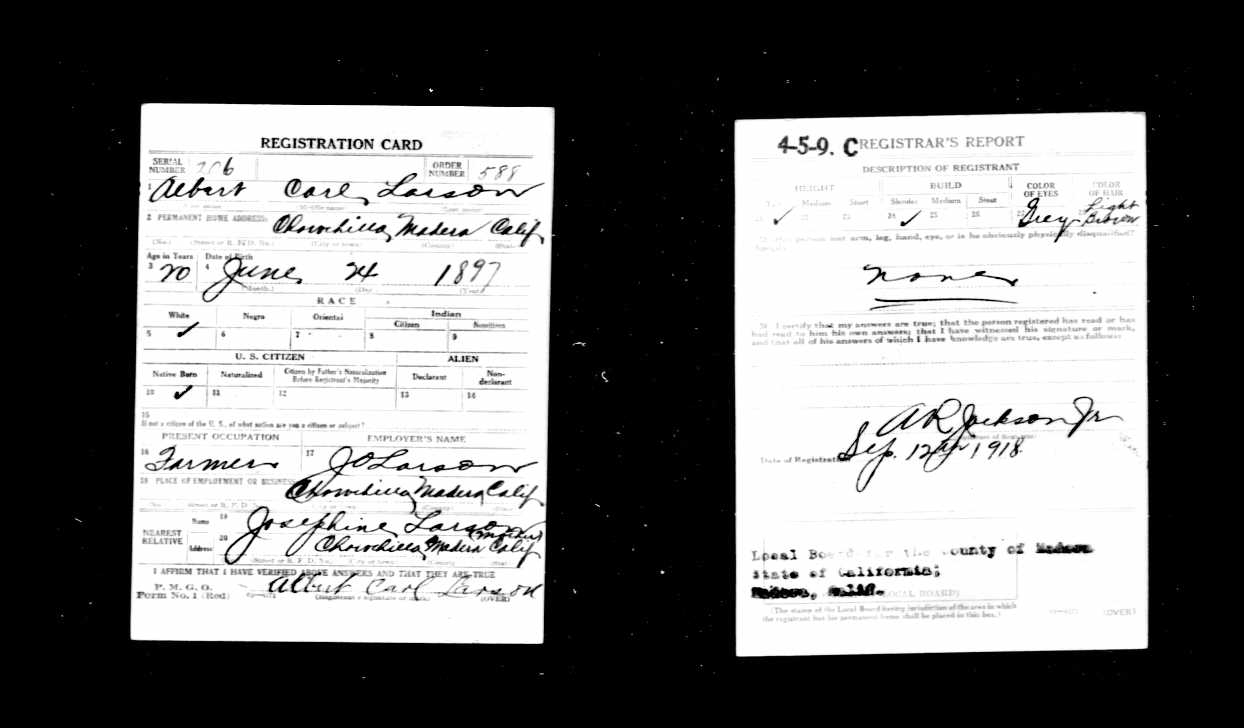 REGISTRATION CARD
SERIAL NUMBER 206 ORDER NUMBER 588
1 Albert Carl Larson
2 PERMANENT HOME ADDRESS:
Chowchilla, Madera Calif
(No.) (Street or R. F. D. No.) (City or town) (County) (State)
Age in Years Date of Birth
3 20 4 June 24 1897
(Month.) (Day.) (Year.)
RACE
White Negro Oriental Indian
Citizen Noncitizen
5 ✓ 6 7 8 9
U. S. CITIZEN ALIEN
Native Born Naturalized Citizen by Father's Naturalization Before Registrant's Majority Declarant Non-declarant
10 ✓ 11 12 13 14
15
If not a citizen of the U. S., of what nation are you a citizen or subject?
PRESENT OCCUPATION EMPLOYER'S NAME
16 Farmer 17 J O Larson
18 PLACE OF EMPLOYMENT OR BUSINESS:
Chowchilla, Madera, Calif
(No.) (Street or R. F. D. No.) (City or town) (County) (State)
NEAREST RELATIVE Name 19 Josephine Larson (mother)
Address 20 Chowchilla, Madera Calif
(Street or R. F. D. No.) (City or town) (County) (State)
I AFFIRM THAT I HAVE VERIFIED ABOVE ANSWERS AND THAT THEY ARE TRUE
P. M. G. O.
Form No. 1 (Red) Albert Carl Larson
(Registrant's signature or mark) (OVER)
4-5-9. C REGISTRAR'S REPORT
DESCRIPTION OF REGISTRANT
HEIGHT BUILD COLOR OF EYES COLOR OF HAIR
Tall Medium Short Slender Medium Stout
21 ✓ 22 23 24 ✓ 25 26 27 Grey Light Brown
person lost arm, leg, hand, eye, or is he obviously physically disqualified?
none
30 I certify that my answers are true; that the person registered has read or has
had read to him his own answers; that I have witnessed his signature or mark,
and that all of his answers of which I have knowledge are true, except as follows:
A R Jackson Jr
Date of Registration Sep. 12 1918
Local Board for the County of Madera
State of California;
Madera, Calif.
(LOCAL BOARD)
(The stamp of the Local Board having jurisdiction of the area in which
the registrant has his permanent home shall be placed in this box.)
(OVER)